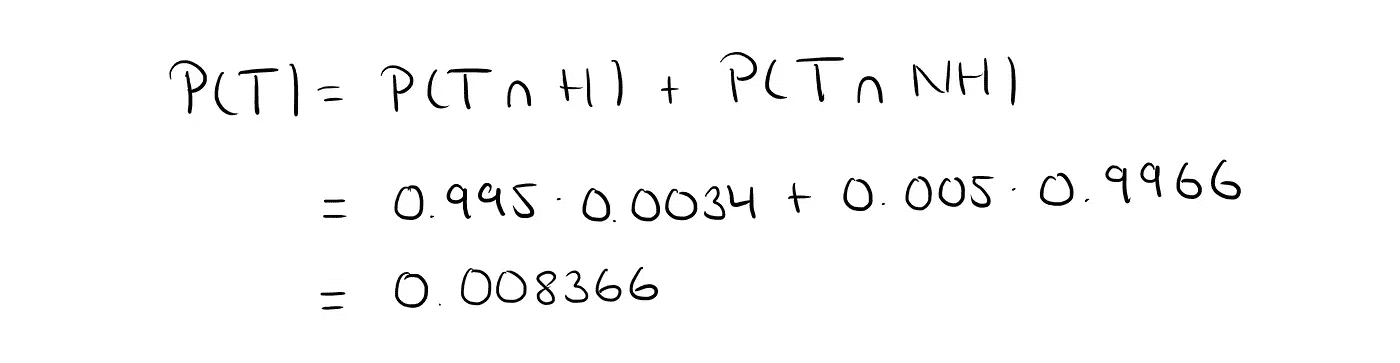 P(T) = P(T ∩ H) + P(T ∩ NH)
= 0.995 · 0.0034 + 0.005 · 0.9966
= 0.008366